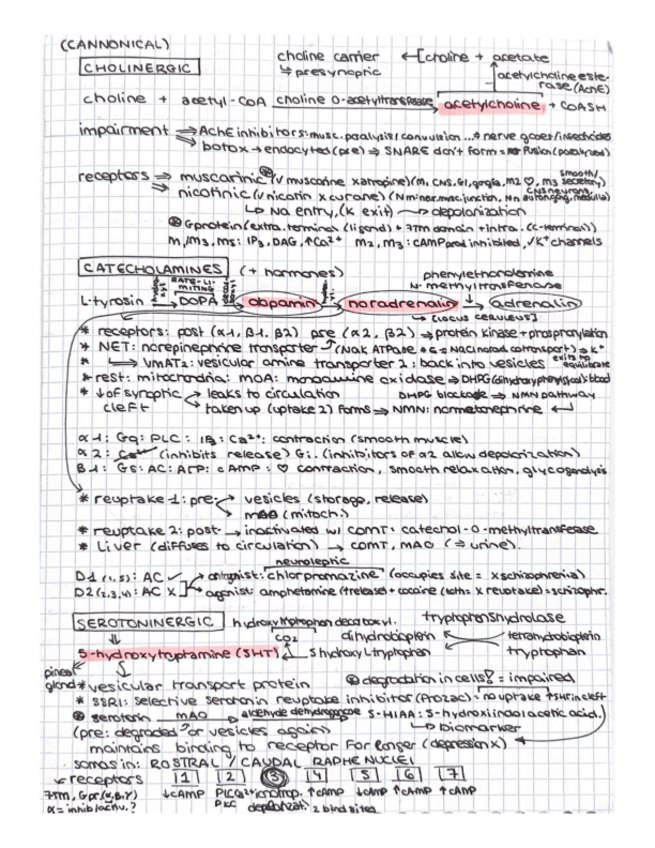 (CANNONICAL)
CHOLINERGIC
choline carrier ←[choline + acetate
↳ presynoptic
acetylcholine este-
rase (AChE)
choline + acetyl-CoA choline O-acetyltransferase acetylcholine + COASH
impairment ⇒ AChE inhibitors: musc. paalysis/convulsion ...→ nerve gases/insecticides
⇒ botox → endocyted (pre) ⇒ SNARE don't form = fusion (paralyzed)
receptors ⇒ muscarinic (v muscarine x atropine) (M1 CNS, GI, ganglia, M2 ♡, M3 smooth/secretory)
⇒ nicotinic (v nicotin x curare) (Nm: neur.musc.junction, Nn CNS neurons, auton.gang, medulla)
↳ Na entry, (K exit) → depolarization
G protein (extra. terminal (ligand) + 7TM domain + intra. (C-terminal))
M1, M3, M5: IP3, DAG, ↑Ca2+ M2, M3: cAMP prod inhibited, ✓K+ channels
CATECHOLAMINES (+ hormones)
phenylethanolamine
N-methyltransferase
RATE-LI-
MITING
L-tyrosin → DOPA → dopamin → noradrenalin → adrenalin
↳ [locus ceruleus]
* receptors: post (α1, β1, β2) pre (α2, β2) ⇒ protein kinase + phosphorylation
* NET: norepinephrine transporter (NaK ATPase + NaCl norad cotransport) ⇒ K+ exits to equilibrate
* ↳ VMAT2: vesicular amine transporter 2: back into vesicles
* rest: mitochondria: MOA: monoamine oxidase ⇒ DHPG (dihydroxyphenylglycol): blood
* ↓ of synaptic cleft → leaks to circulation DHPG blockade ⇒ NMN pathway
→ taken up (uptake 2) forms ⇒ NMN: normetanephrine
α1: Gq: PLC: IP3: Ca2+: contraction (smooth muscle)
α2: (inhibits release) Gi. (inhibitors of α2 allow depolarization)
B1: GS: AC: ATP: cAMP: ♡ contraction, smooth relaxation, glycogenolysis
* reuptake 1: pre: → vesicles (storage, release)
→ MAO (mitoch.)
* reuptake 2: post → inactivated w/ COMT: catechol-O-methyltransferase
* Liver (diffuses to circulation) → COMT, MAO (⇒ urine).
neuroleptic
D1 (1,5): AC ✓ → antagonist: chlorpromazine (occupies site = x schizophrenia)
D2 (2,3,4): AC X → agonist: amphetamine (↑release) + cocaine (both: x reuptake) = schizophr.
SEROTONINERGIC hydroxytryptophan decarboxyl. tryptophanshydrolase
CO2 dihydrobioptein tetrahydrobioptein
5-hydroxytryptamine (5HT) 5 hydroxy L tryptophan tryptophan
pineal
gland * vesicular transport protein degradation in cells = impaired
* SSRI: selective seratonin reuptake inhibitor (Prozac) - no uptake ↑5HT in cleft
serotonin MAO → aldehyde dehydrogenase 5-HIAA: 5-hydroxiindolacetic acid.
(pre: degraded or vesicles again) ↳ biomarker
maintains binding to receptor for longer (depression x)
somas in: ROSTRAL / CAUDAL RAPHE NUCLEI
receptors 1 2 3 4 5 6 7
7TM, Gpr (α, β, γ) ↓cAMP PLC Ca2+ ionotrop. ↑cAMP ↓cAMP ↑cAMP ↑cAMP
α = inhib/activ.? PKC depolarizat. 2 bind sites